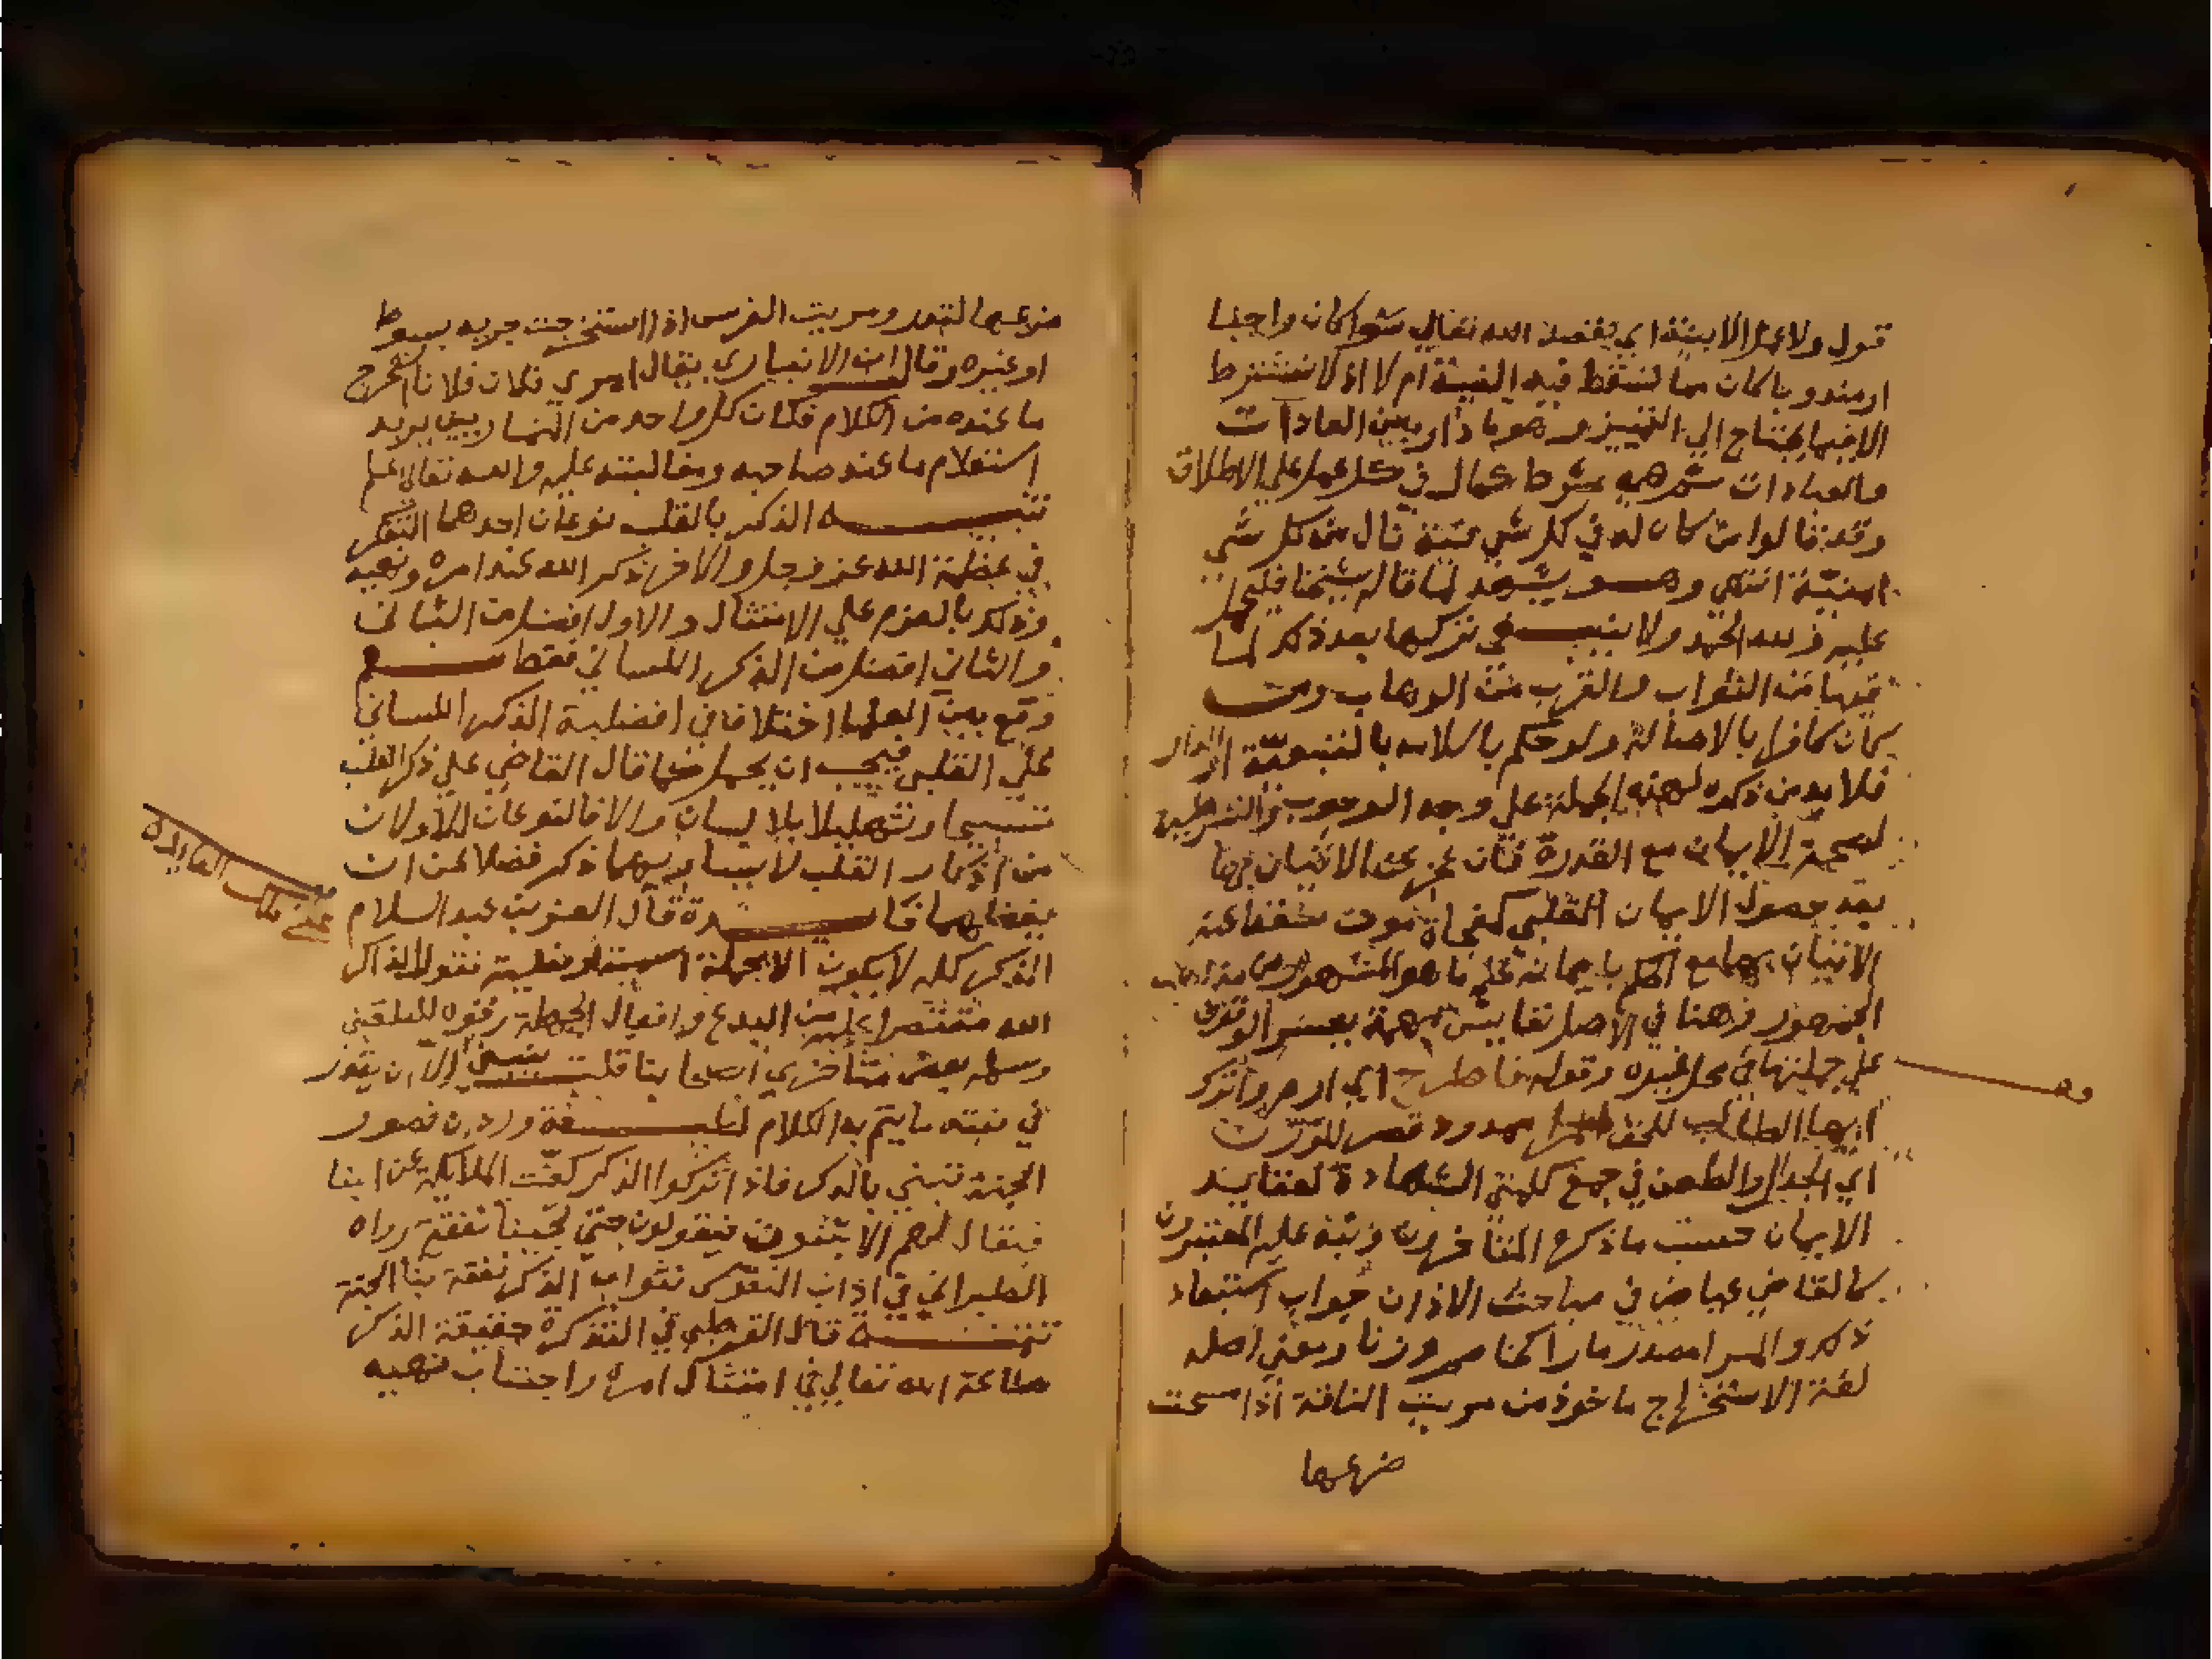 قول ولا عمل الا بنية اي بقصد الله تعالي سوا كان واجبا
او مندوبا كان مما تشترط فيه النية ام لا اذ لا تشترط
الا فيما يحتاج الي التمييز وهو ما دار بين العادات
والعبادات شرط كمال في كل عمل علي الاطلاق
وقد قالوا من كان له في كل شي نية نال من كل شي
امنيته انتهي وهو يشهد لما قاله شيخنا فليحمل
عليه ولله الحمد ولا ينبغي تركها بعد ذكر لما
فيها من الثواب والقرب من الوهاب ومن
كان كافرا بالاصالة ولو حكم باسلامه بالتبعية او الدار
فلا بد من ذكره لهذه الجملة علي وجه الوجوب والشرطية
لصحة الايمان مع القدرة فان عجز عن الاتيان بها
بعد حصول الايمان القلبي كفجأة موت سقط عنه
الاتيان بها مع الحكم بايمانه علي ما هو المشهور من مذاهب
الجمهور وهنا في الاصل نفايس مهمة بعضر الوقوف
علي جملتها في محل غيره وقوله فاطرح اي ارم واترك
ايها الطالب للحق المرا ممدود قصر للوزن
اي الجدال والطعن في جمع كلمتي الشهادة لعقايد
الايمان حسب ما ذكره المتاخرون ونبه عليه المعتبرون
كالقاضي عياض في مباحث الاذان جواب استبعاد
ذكر والمرا مصدر مارا كخاصم وزنا ومعني اصله
لغة الاستخراج ماخوذ من مريت الناقة اذا مسحت
ضرعها
ضرعها لتدر ومريت الفرس اذا استخرجت جريه بسوط
او غيره وقال ابن الانباري يقال امري فلان فلانا استخرج
ما عنده من الكلام فكان كل واحد من المتماريين يريد
استعلام ما عند صاحبه ومغالبته عليه والله تعالي اعلم
تنبيه الذكر بالقلب نوعان احدهما التفكر
في عظمة الله عز وجل والاخر ذكر الله عند امره ونهيه
وذلك بالعزم علي الامتثال والاول افضل من الثاني
والثاني افضل من الذكر اللساني فقط نعم
وقع بين العلما اختلاف في افضلية الذكر اللساني
علي القلبي فيجب ان يحمل كما قال القاضي علي ذكر القلب
تسبيحا وتهليلا بلا لسان والا فالنوعان الاولان
من اذكار القلب لا يساويهما ذكر فضلا عن ان
يفضلهما فايدة قال العز بن عبد السلام
الذكر كله لا يكون الا بجملة اسمية او فعلية فتقول الذاكر
الله مقتصرا عليه من البدع وافعال الجهلة ونحوه للبلقيني
وسلمه بعض متاخري اصحابنا قلت ينبغي الا ان ينوي
في نيته ما يتم به الكلام لطيفة ورد ان قصور
الجنة تبني بالذكر فاذا تركوا الذكر كفت الملايكة عن البنا
فيقال لهم الا تبنون فيقولون حتي تجينا نفقة رواه
الطبراني في اداب النفوس فثواب الذكر نفقة بنا الجنة
تتمة قال القرطبي في التذكرة حقيقة الذكر
طاعة الله تعالي في امتثال امره واجتناب نهيه